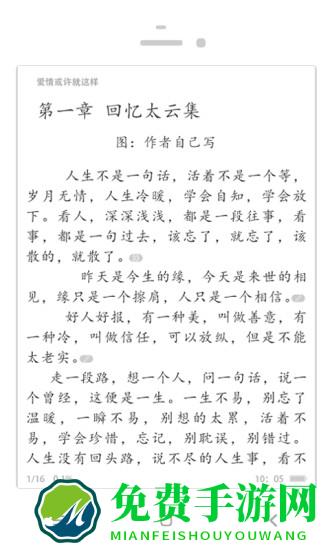 爱情或许就这样
第一章 回忆太云集
图：作者自己写
人生不是一句话，活着不是一个等，
岁月无情，人生冷暖，学会自知，学会放
下。看人，深深浅浅，都是一段往事，看
事，都是一句过去，该忘了，就忘了，该
散的，就散了。
昨天是今生的缘，今天是来世的相
见，缘只是一个擦肩，人只是一个相信。
好人好报，有一种美，叫做善意，有
一种冷，叫做信任，可以放纵，但是不能
太老实。
走一段路，想一个人，问一句话，说一
个曾经，这便是一生。一生不易，别忘了
温暖，一瞬不易，别想的太累，活着不
易，学会珍惜，忘记，别耽误，别错过。
人生没有回头路，说不尽的人生事，看不
1/16 0.1% 10:05
免费手游网
MIANFEISHOUYOUWANG